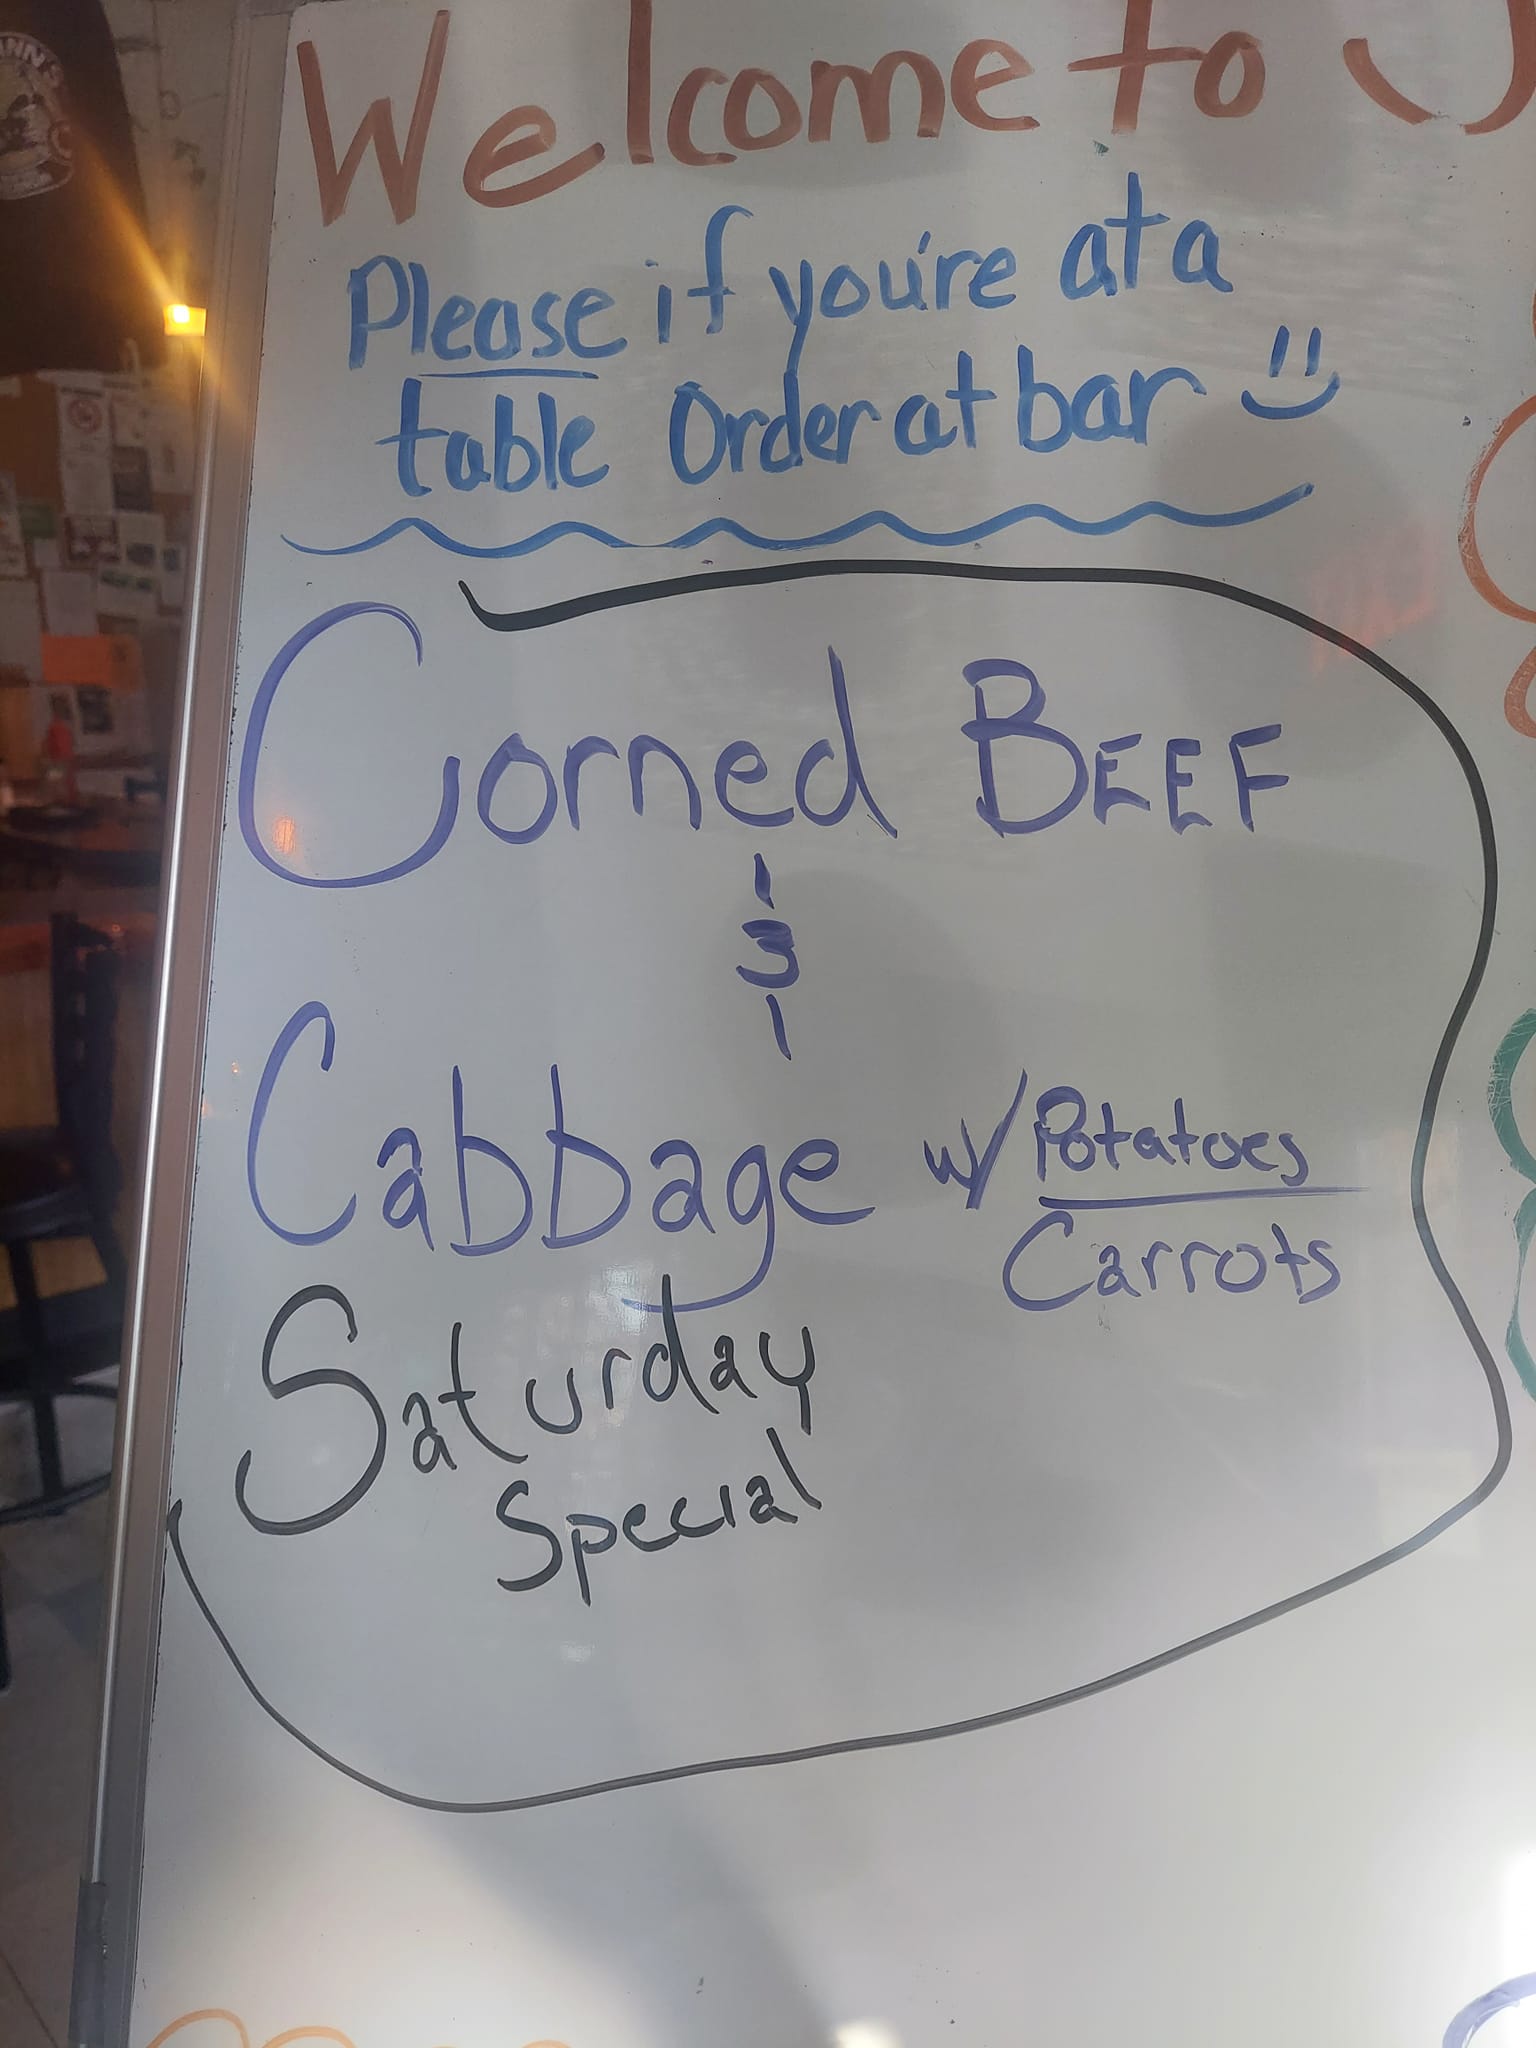 INN'S
Welcome to J
Please if you're at a
table Order at bar
Corned BEEF
&
Cabbage w/ Potatoes
Carrots
Saturday
Special